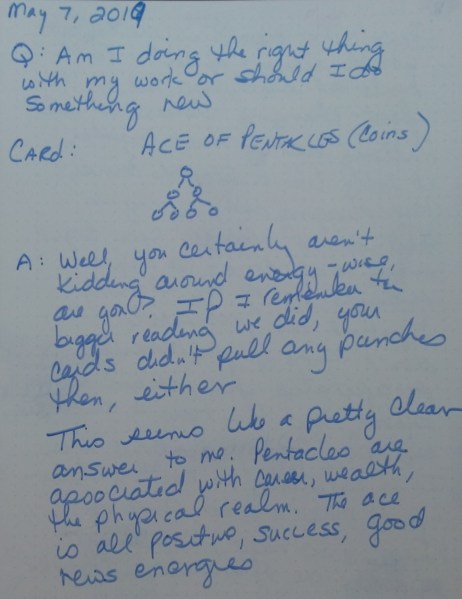 May 7, 2019
Q: Am I doing the right thing
with my work or should I do
something new
CARD: ACE OF PENTACLES (Coins)
A: Well, you certainly aren't
kidding around energy-wise,
are you? If I remember the
bigger reading we did, your
cards didn't pull any punches
then, either
This seems like a pretty clear
answer to me. Pentacles are
associated with career, wealth,
the physical realm. The ace
is all positive, success, good
news energies